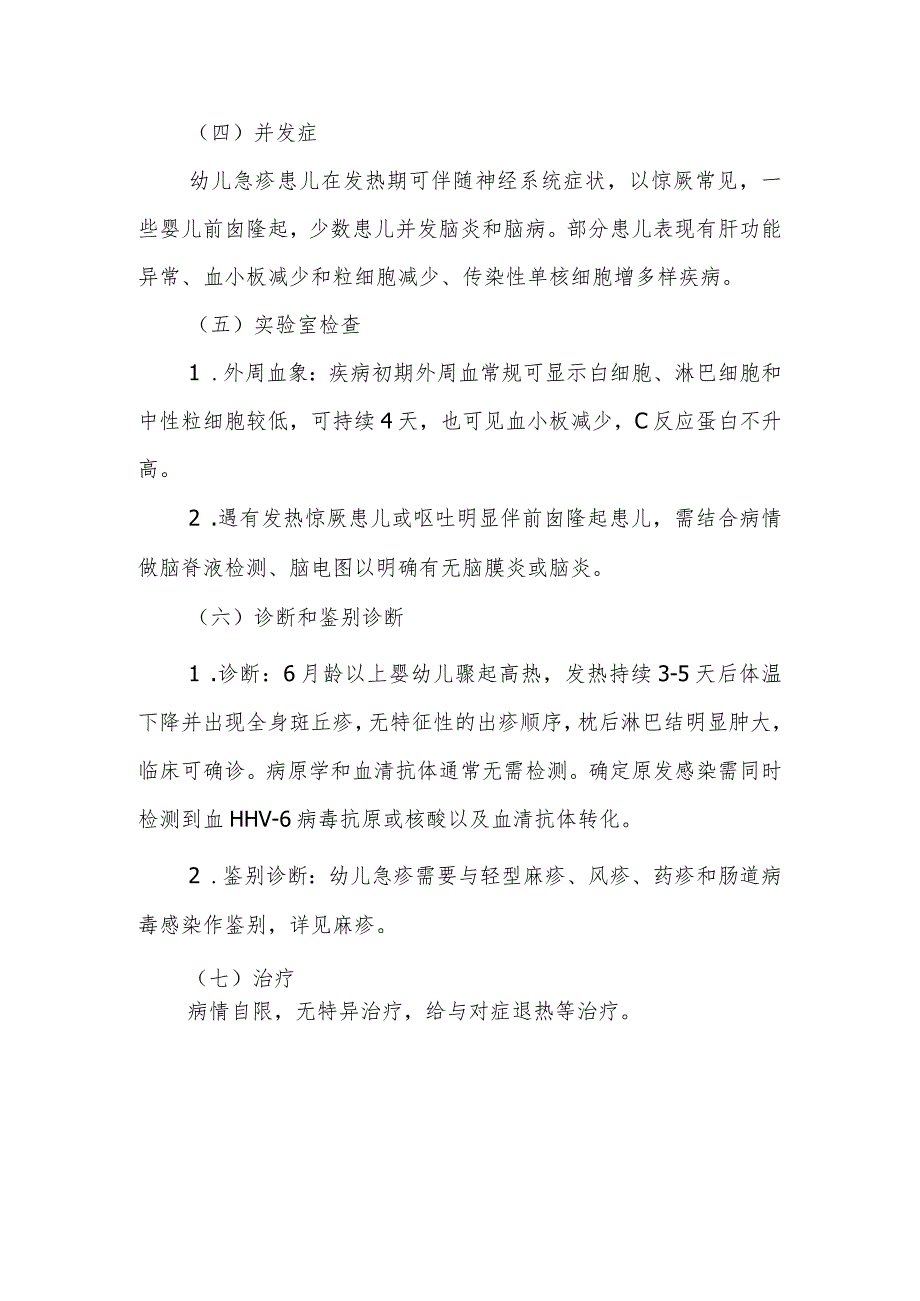 （四）并发症
幼儿急疹患儿在发热期可伴随神经系统症状，以惊厥常见，一
些婴儿前囟隆起，少数患儿并发脑炎和脑病。部分患儿表现有肝功能
异常、血小板减少和粒细胞减少、传染性单核细胞增多样疾病。
（五）实验室检查
1 .外周血象：疾病初期外周血常规可显示白细胞、淋巴细胞和
中性粒细胞较低，可持续 4 天，也可见血小板减少，C 反应蛋白不升
高。
2 .遇有发热惊厥患儿或呕吐明显伴前囱隆起患儿，需结合病情
做脑脊液检测、脑电图以明确有无脑膜炎或脑炎。
（六）诊断和鉴别诊断
1 .诊断：6 月龄以上婴幼儿骤起高热，发热持续 3-5 天后体温
下降并出现全身斑丘疹，无特征性的出疹顺序，枕后淋巴结明显肿大，
临床可确诊。病原学和血清抗体通常无需检测。确定原发感染需同时
检测到血 HHV-6 病毒抗原或核酸以及血清抗体转化。
2 .鉴别诊断：幼儿急疹需要与轻型麻疹、风疹、药疹和肠道病
毒感染作鉴别，详见麻疹。
（七）治疗
病情自限，无特异治疗，给与对症退热等治疗。